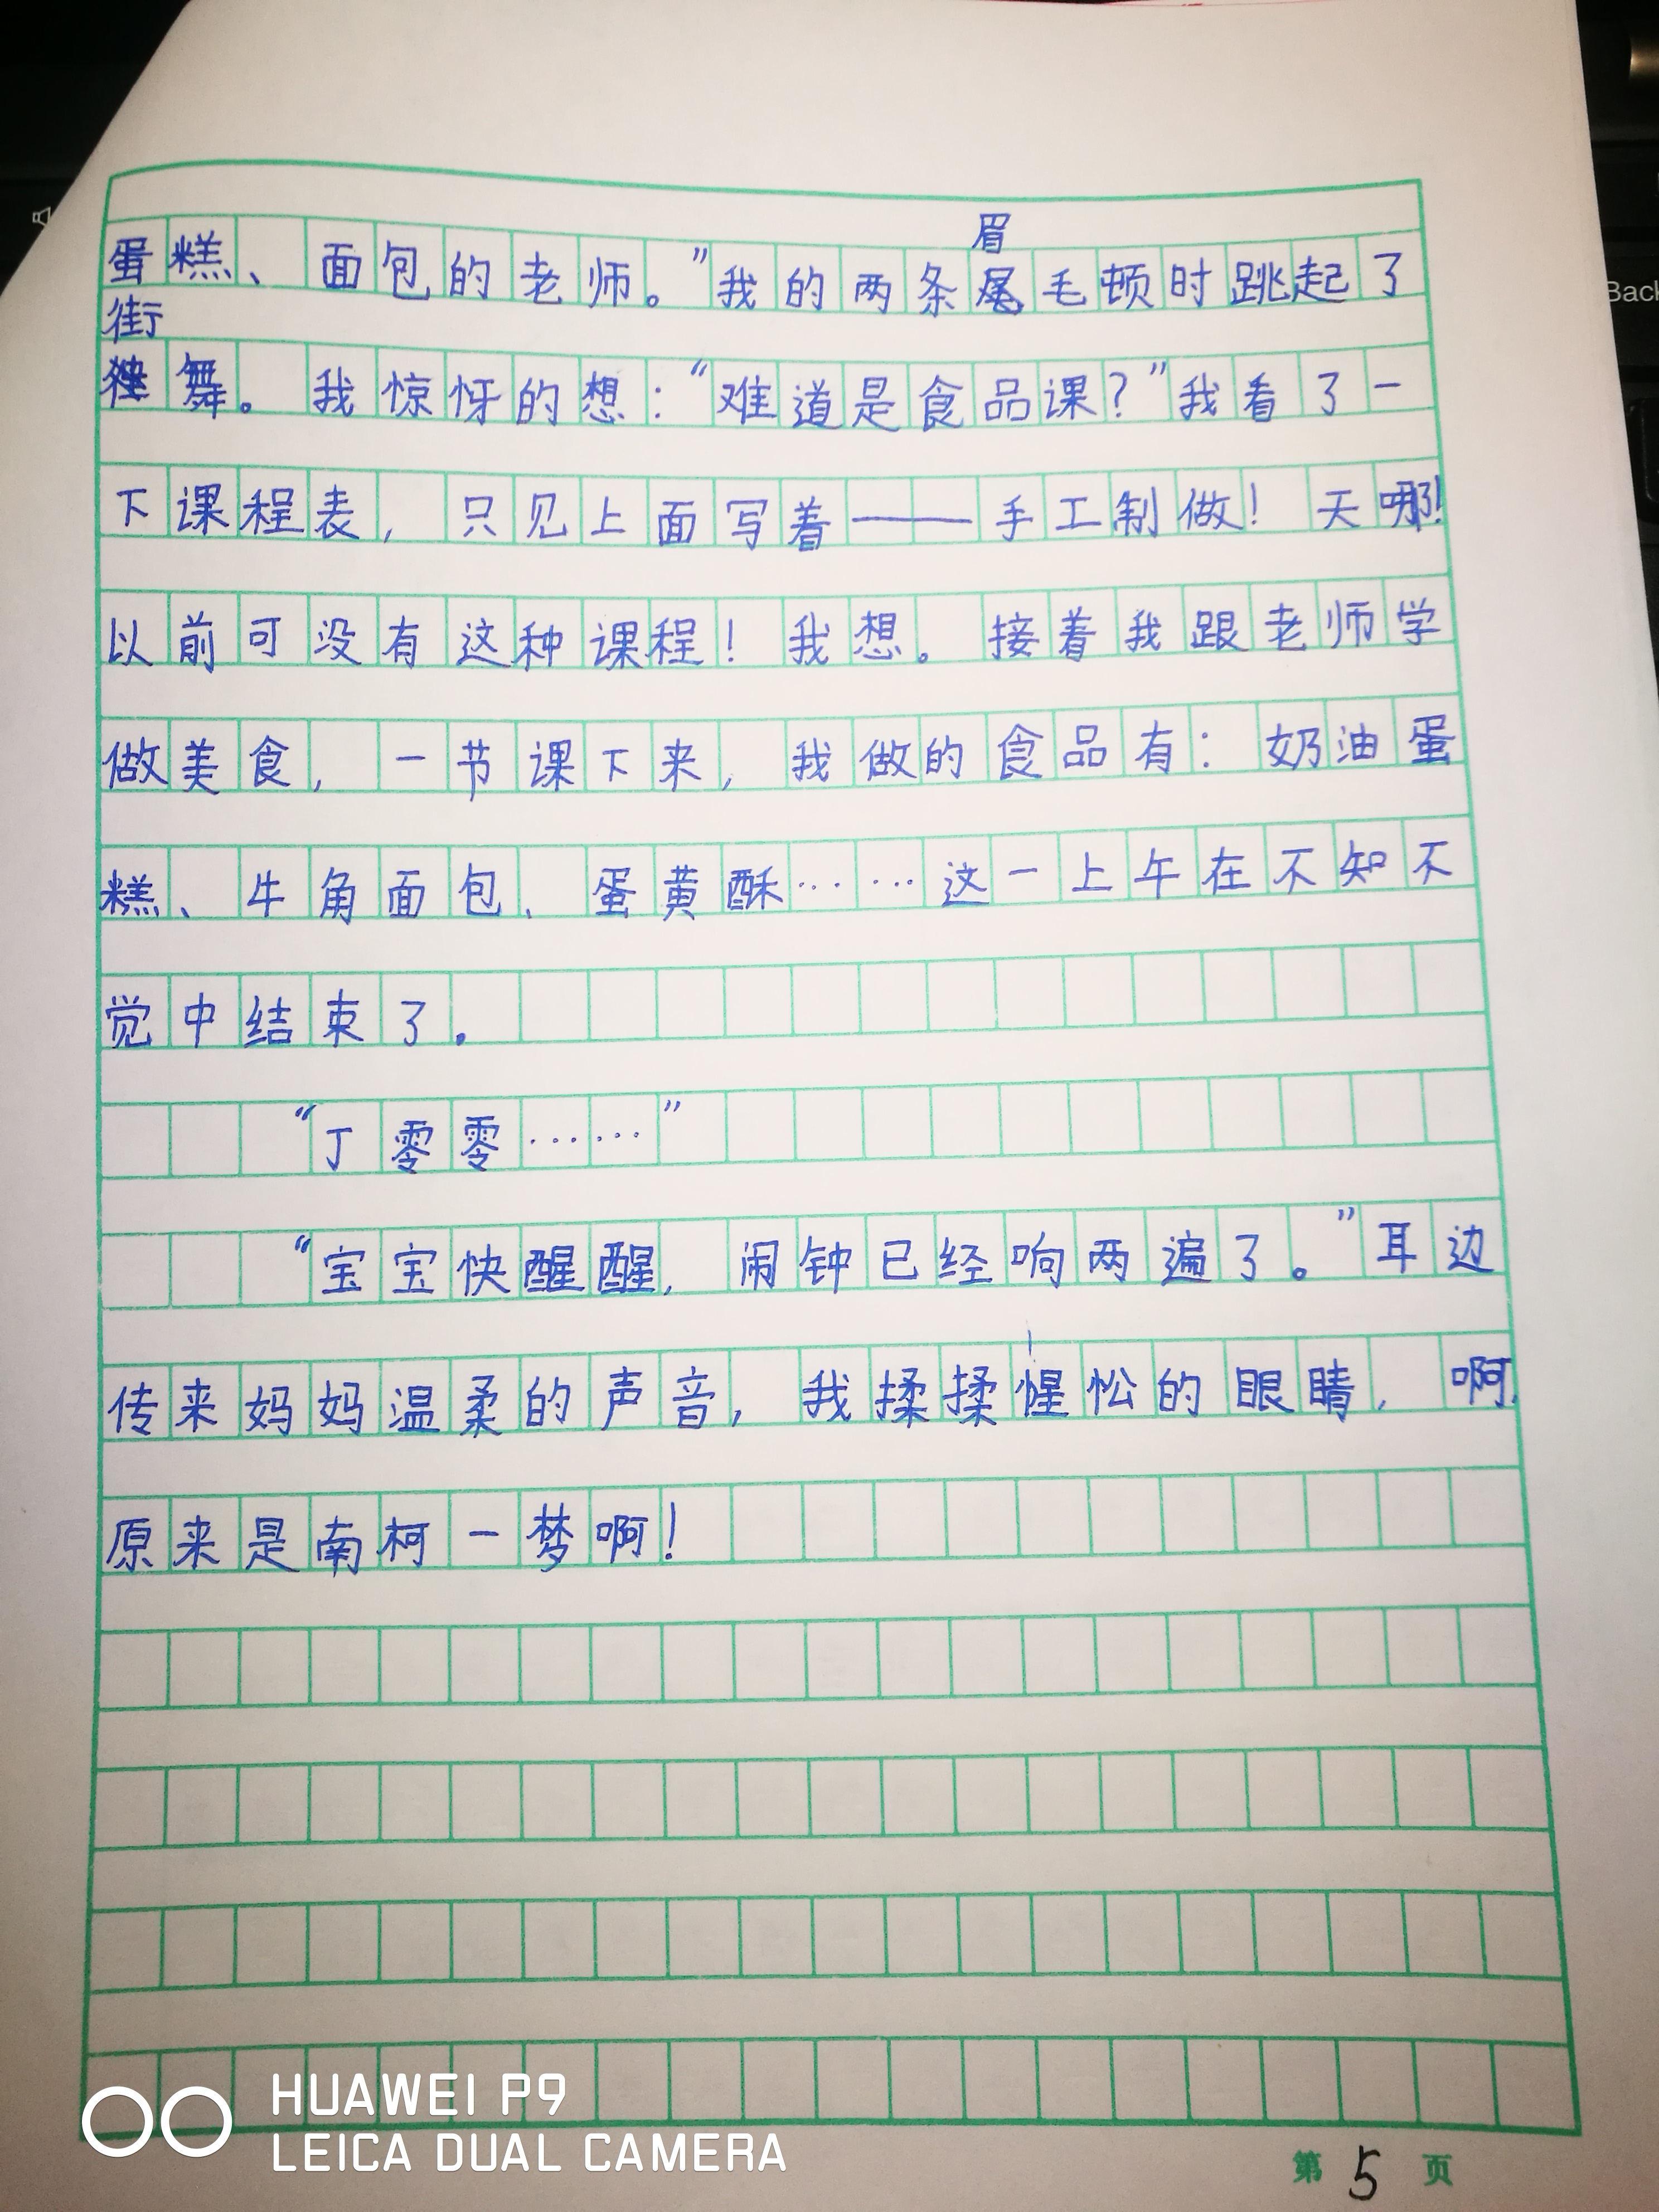 眉
蛋糕、面包的老师。”我的两条尾毛顿时跳起了
街
舞。我惊怀的想：“难道是食品课？”我看了一
下课程表，只见上面写着——手工制做！天哪！
以前可没有这种课程！我想。接着我跟老师学
做美食，一节课下来，我做的食品有：奶油蛋
糕、牛角面包、蛋黄酥……这一上午在不知不
觉中结束了。
“丁零零……”
“宝宝快醒醒，闹钟已经响两遍了。”耳边
传来妈妈温柔的声音，我揉揉惺忪的眼睛，啊，
原来是南柯一梦啊！
HUAWEI P9
LEICA DUAL CAMERA
第 5 页
Back